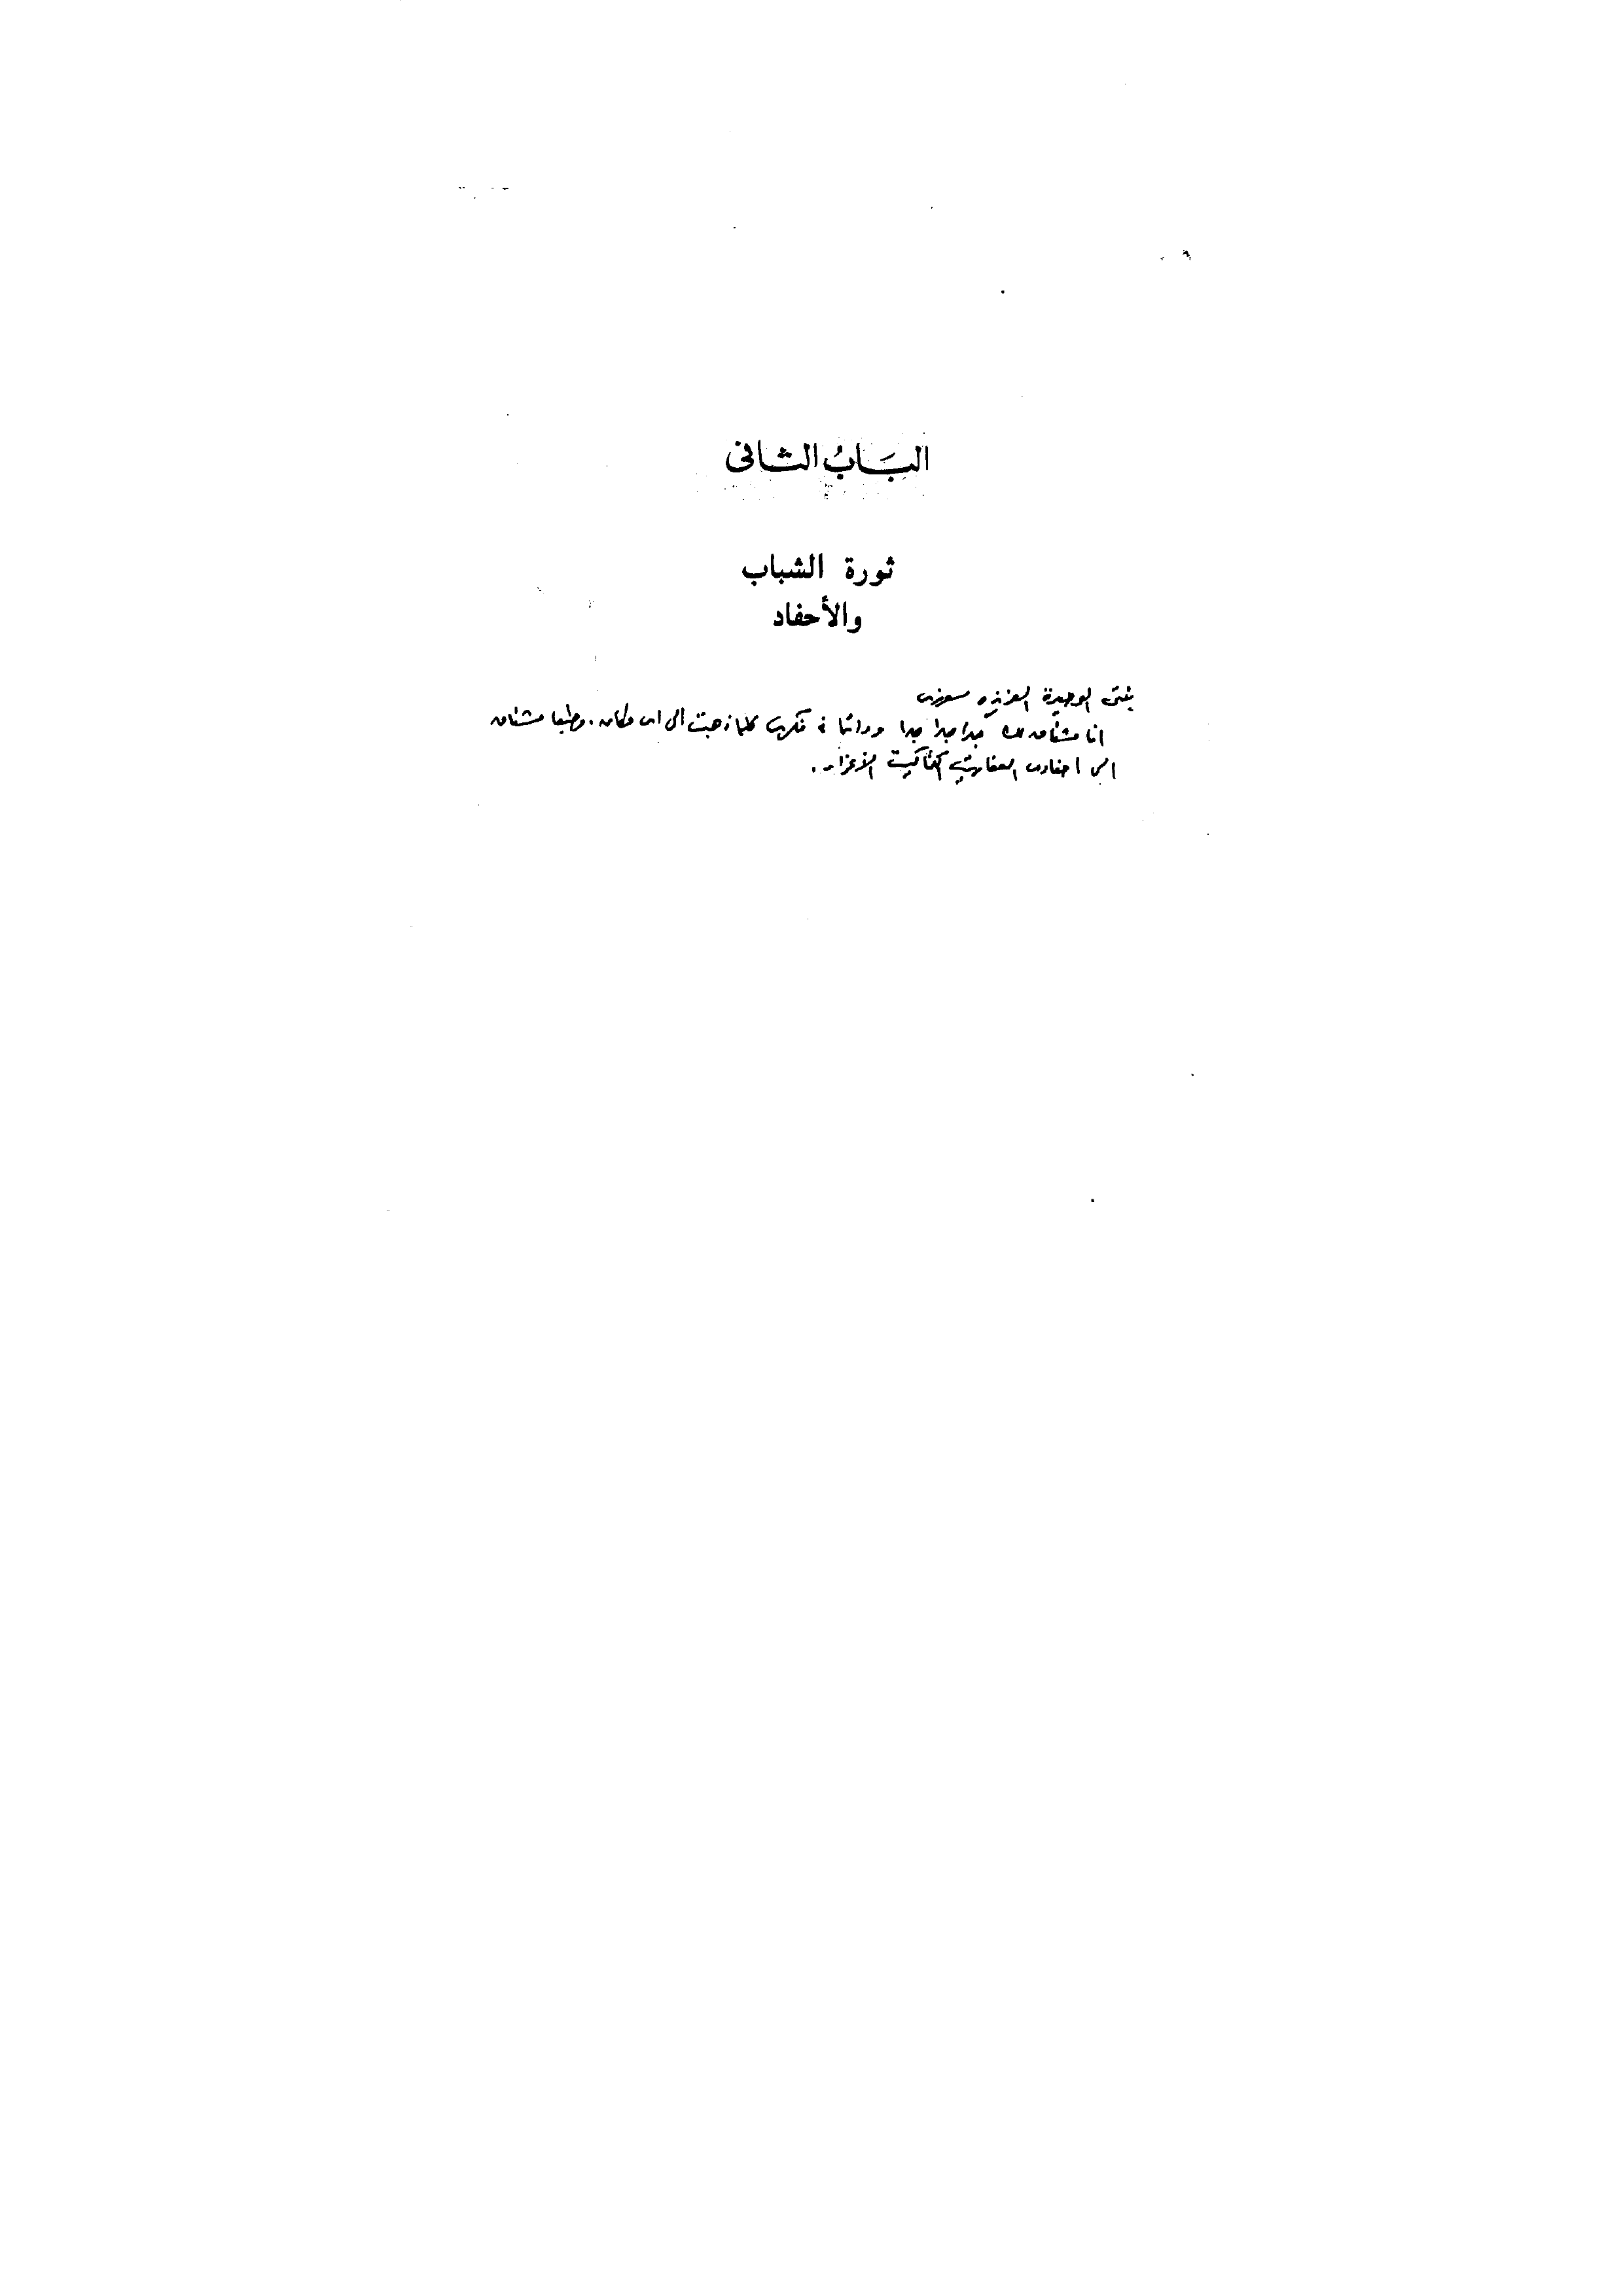 البَابُ الثانى
ثورة الشباب
والأحفاد
بنتى الوحيدة العزيزه سوزى
انا مشتاق لك جدا جدا جدا ودائما فى فكرى كلما ذهبت الى اى مكان. وطبعا مشتاق
الى احفادى العفاريت الكتاكيت الأعزاء.